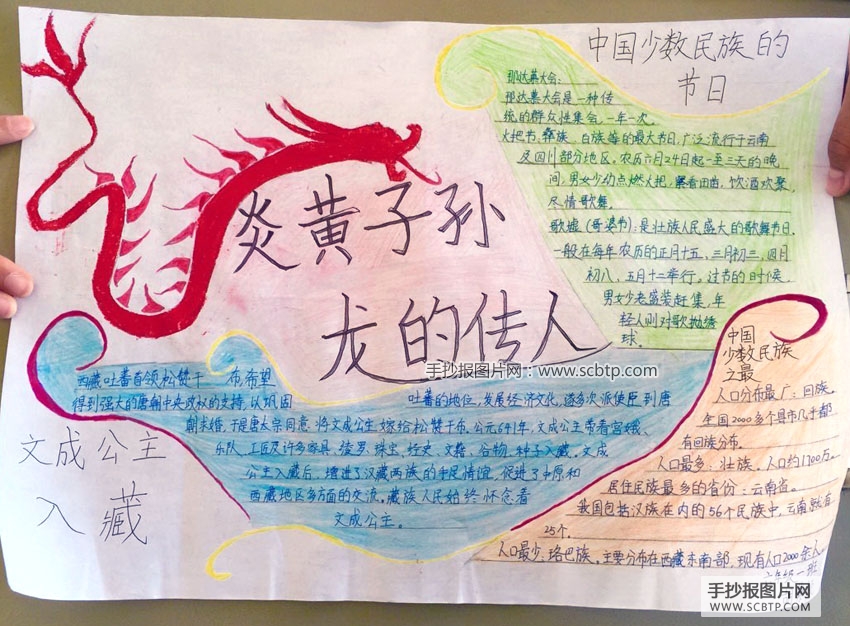 中国少数民族的
节日
那达慕大会:
那达慕大会是一种传
统的群众性集会,一年一次。
火把节:彝族、白族等的最大节日,广泛流行于云南
及四川部分地区。农历六月24日起一至三天的晚
间,男女少幼点燃火把,田曲,饮酒欢聚,
尽情歌舞
歌墟(歌婆节):是壮族人民盛大的歌舞节日,
一般在每年农历的正月十五、三月初三、四月
初八、五月十二举行。过节的时候,
男女少老盛装赶集,年
轻人则对歌抛绣
球。
炎黄子孙
龙的传人
手抄报图片网:www.scbtp.com
西藏吐蕃首领松赞干 布,希望
得到强大的唐朝中央政权的支持,以巩固 吐蕃的地位,发展经济文化,逐多次派使臣到唐
朝求婚,于是唐太宗同意,将文成公主嫁给松赞干布。公元641年,文成公主带着宫娥、
乐队、工匠及许多家具、绫罗、珠宝、经史、文籍、谷物、种子入藏。文成
公主入藏后,增进了汉藏两族的手足情谊,促进了中原和
西藏地区多方面的交流。藏族人民始终怀念着
文成公主。
文成公主
入藏
中国
少数民族
之最
人口分布最广:回族。
全国2000多个县市几乎都
有回族分布。
人口最多:壮族,人口约1700万。
居住民族最多的省份:云南省。
我国包括汉族在内的56个民族中,云南就有
25个。
人口最少:珞巴族。主要分布在西藏东南部,现有人口2000余人
六年级一班
手抄报图片网
WWW.SCBTP.COM